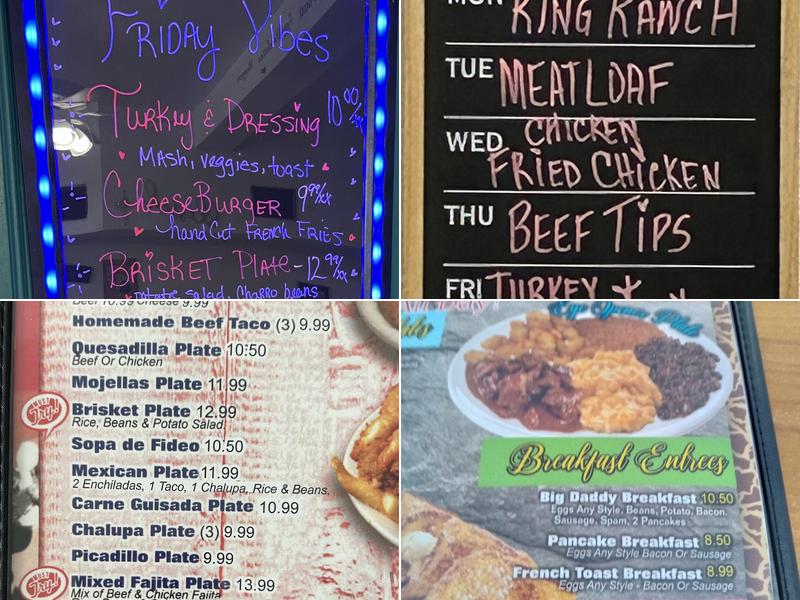 FRIDAY Vibes
TURKEY & DRESSING 10.00/xx
MASH, Veggies, toast
CHEESEBURGER 9.99/xx
hand Cut FRENCH FRIES
BRISKET PLATE - 12.99/xx
potato salad, CHARRO beans
MON KING RANCH
TUE MEATLOAF
WED CHICKEN
FRIED CHICKEN
THU BEEF TIPS
FRI TURKEY &
Beef 10.99 Cheese 9.99
Homemade Beef Taco (3) 9.99
Quesadilla Plate 10:50
Beef Or Chicken
Mojellas Plate 11.99
MUST Try! Brisket Plate 12.99
Rice, Beans & Potato Salad
Sopa de Fideo 10.50
Mexican Plate 11.99
2 Enchiladas, 1 Taco, 1 Chalupa, Rice & Beans,
Carne Guisada Plate 10.99
Chalupa Plate (3) 9.99
Picadillo Plate 9.99
MUST Try! Mixed Fajita Plate 13.99
Mix of Beef & Chicken Fajita
Eye Opener Plate
Breakfast Entrees
Big Daddy Breakfast 10.50
Eggs Any Style, Beans, Potato, Bacon,
Sausage, Spam, 2 Pancakes
Pancake Breakfast 8.50
Eggs Any Style Bacon Or Sausage
French Toast Breakfast 8.99
Eggs Any Style - Bacon Or Sausage